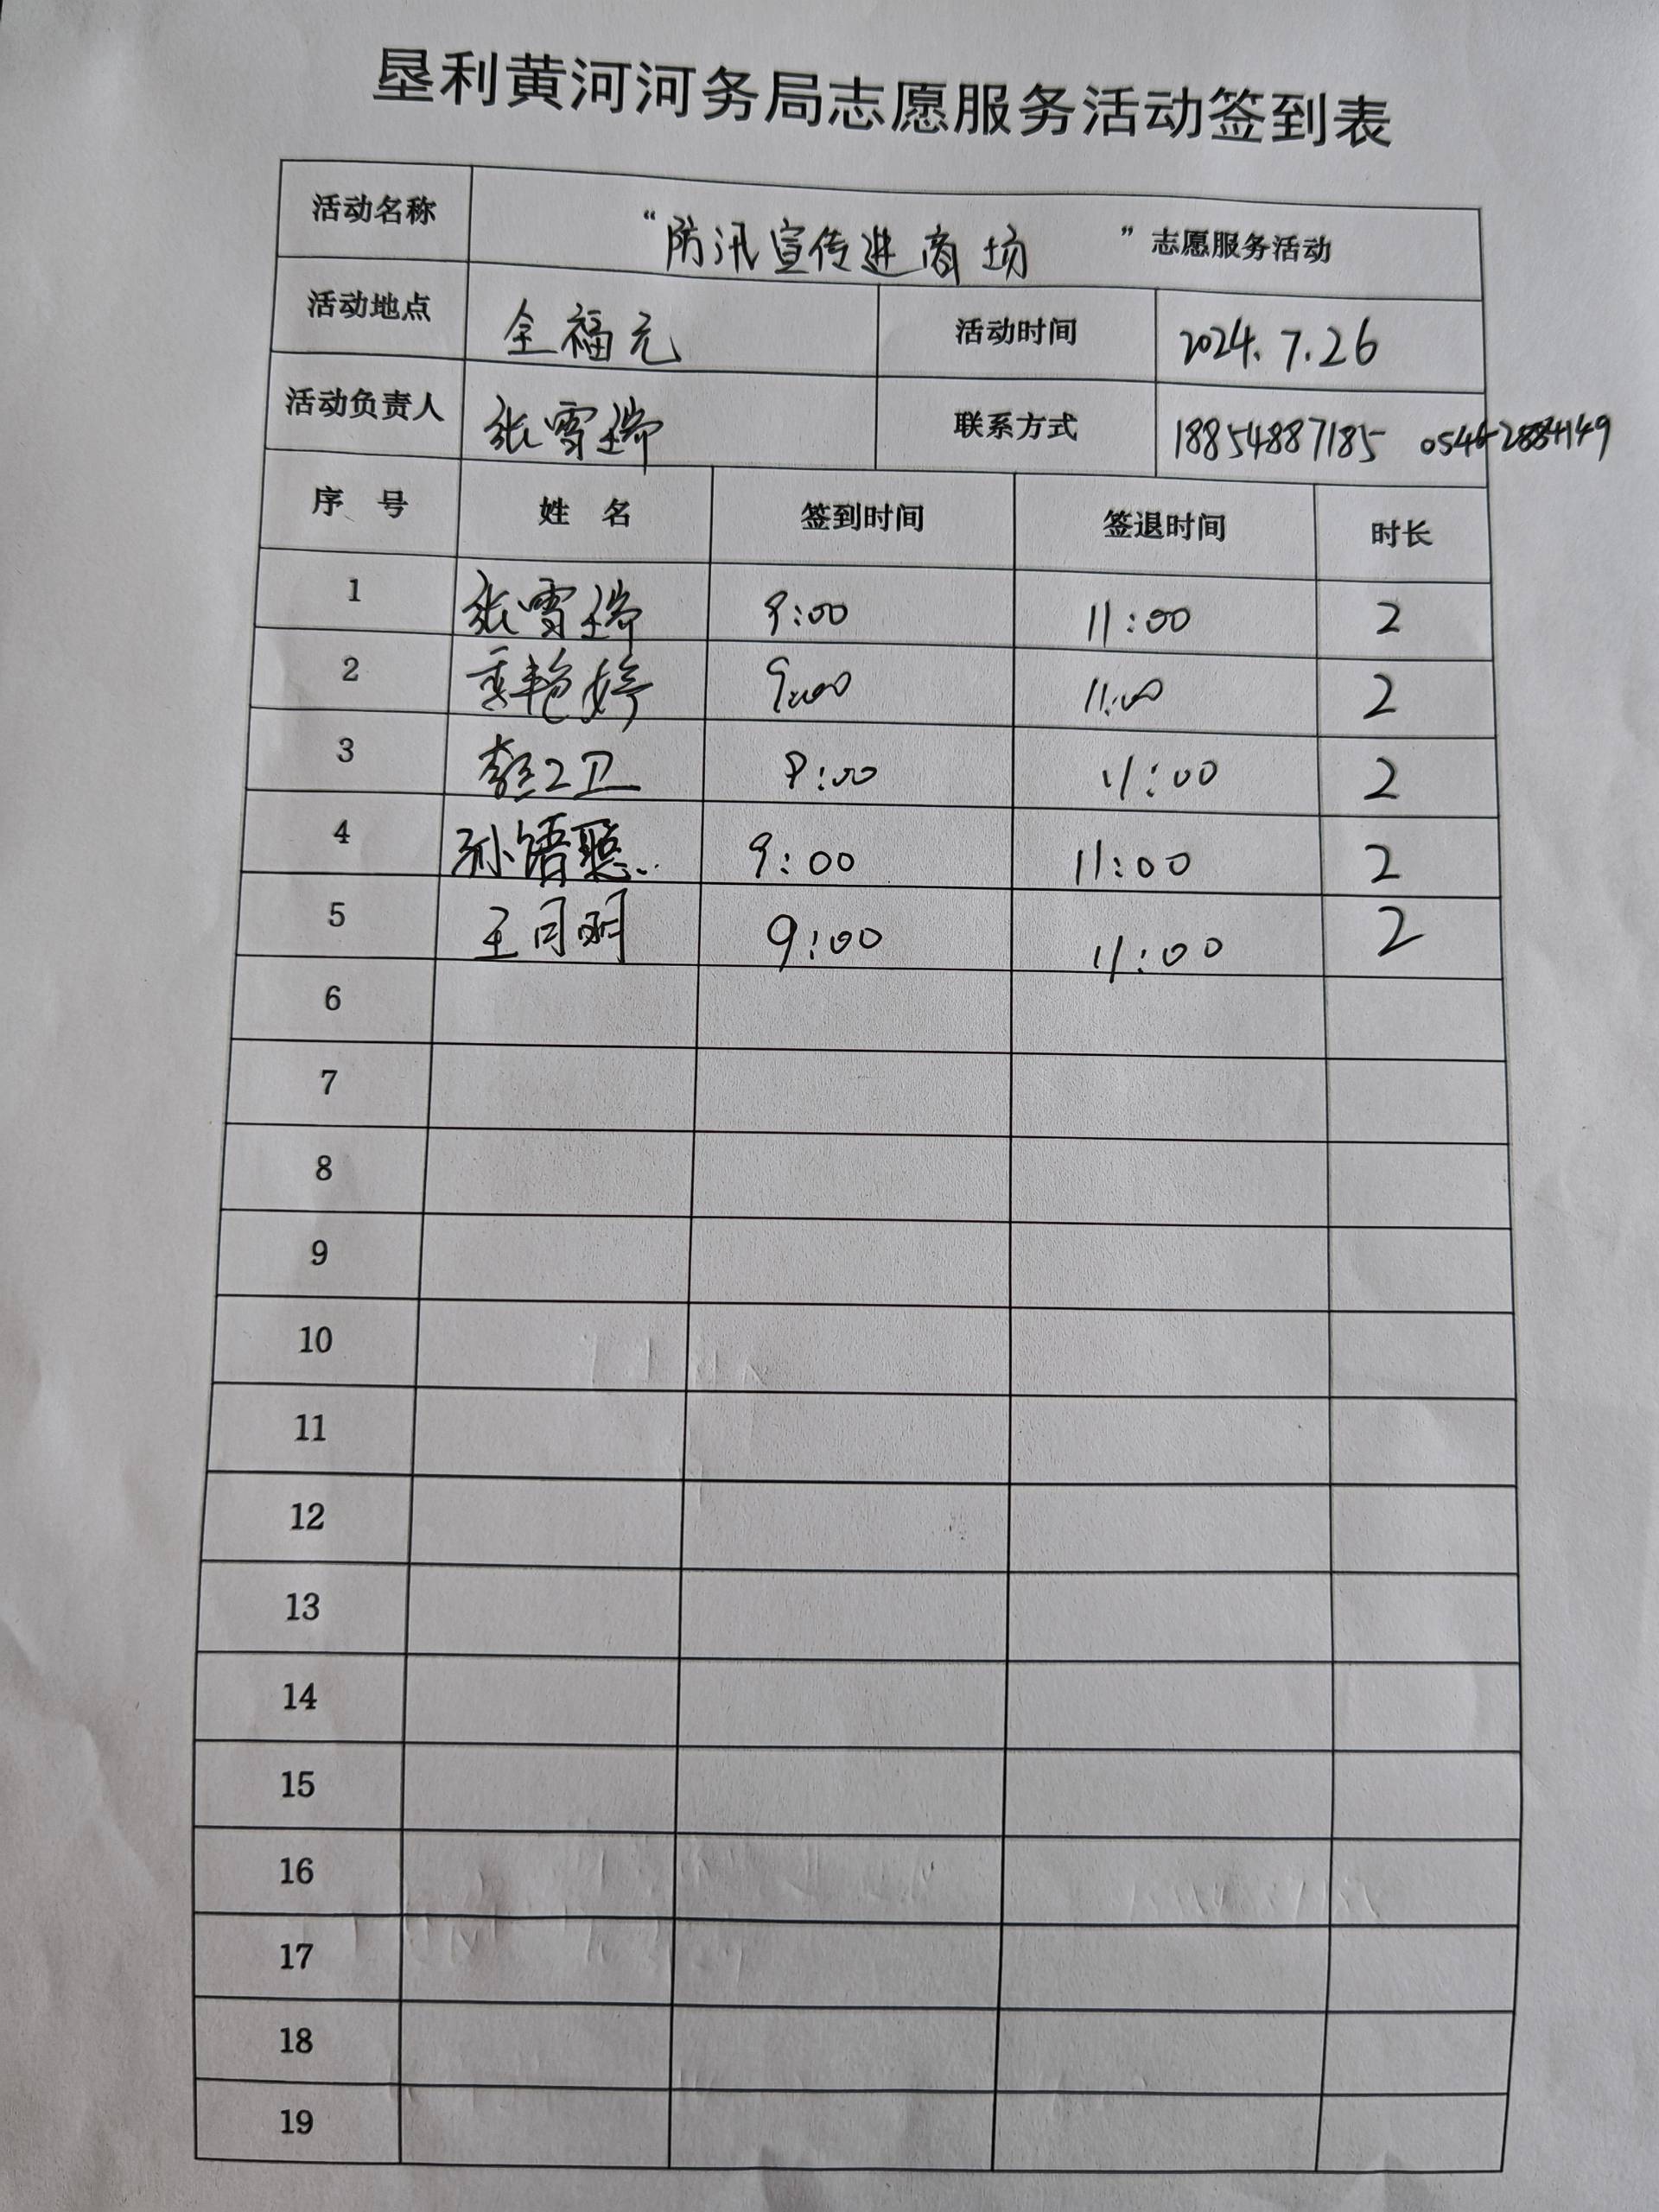 垦利黄河河务局志愿服务活动签到表
活动名称 “防汛宣传进商场”志愿服务活动
活动地点 全福元 活动时间 2024.7.26
活动负责人 张雪瑞 联系方式 18854887185 0546-2884149
序号 姓名 签到时间 签退时间 时长
1 张雪瑞 9:00 11:00 2
2 季艳婷 9:00 11:00 2
3 卫 9:00 11:00 2
4 孙语聪 9:00 11:00 2
5 王月明 9:00 11:00 2
6
7
8
9
10
11
12
13
14
15
16
17
18
19